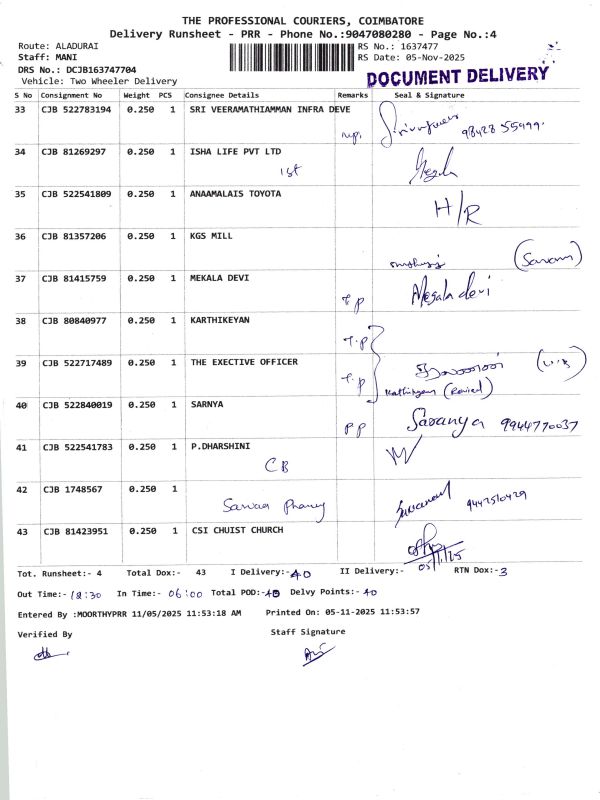 THE PROFESSIONAL COURIERS, COIMBATORE
Delivery Runsheet - PRR - Phone No.:9047080280 - Page No.:4
Route: ALADURAI
RS No.: 1637477
Staff: MANI
RS Date: 05-Nov-2025
DRS No.: DCJB163747704
Vehicle: Two Wheeler Delivery
DOCUMENT DELIVERY
S No Consignment No Weight PCS Consignee Details Remarks Seal & Signature
33 CJB 522783194 0.250 1 SRI VEERAMATHIAMMAN INFRA DEVE
34 CJB 81269297 0.250 1 ISHA LIFE PVT LTD
1st
35 CJB 522541809 0.250 1 ANAAMALAIS TOYOTA
H/R
36 CJB 81357206 0.250 1 KGS MILL
37 CJB 81415759 0.250 1 MEKALA DEVI
Megala devi
38 CJB 80840977 0.250 1 KARTHIKEYAN
T.P
39 CJB 522717489 0.250 1 THE EXECTIVE OFFICER
T.P
40 CJB 522840019 0.250 1 SARNYA
PP Saranya 9944770037
41 CJB 522541783 0.250 1 P.DHARSHINI
CB
42 CJB 1748567 0.250 1
9442510429
43 CJB 81423951 0.250 1 CSI CHUIST CHURCH
Tot. Runsheet:- 4 Total Dox:- 43 I Delivery:- 40 II Delivery:- RTN Dox:- 3
Out Time:- 12:30 In Time:- 06:00 Total POD:- 40 Delvy Points:- 40
Entered By :MOORTHYPRR 11/05/2025 11:53:18 AM Printed On: 05-11-2025 11:53:57
Verified By Staff Signature